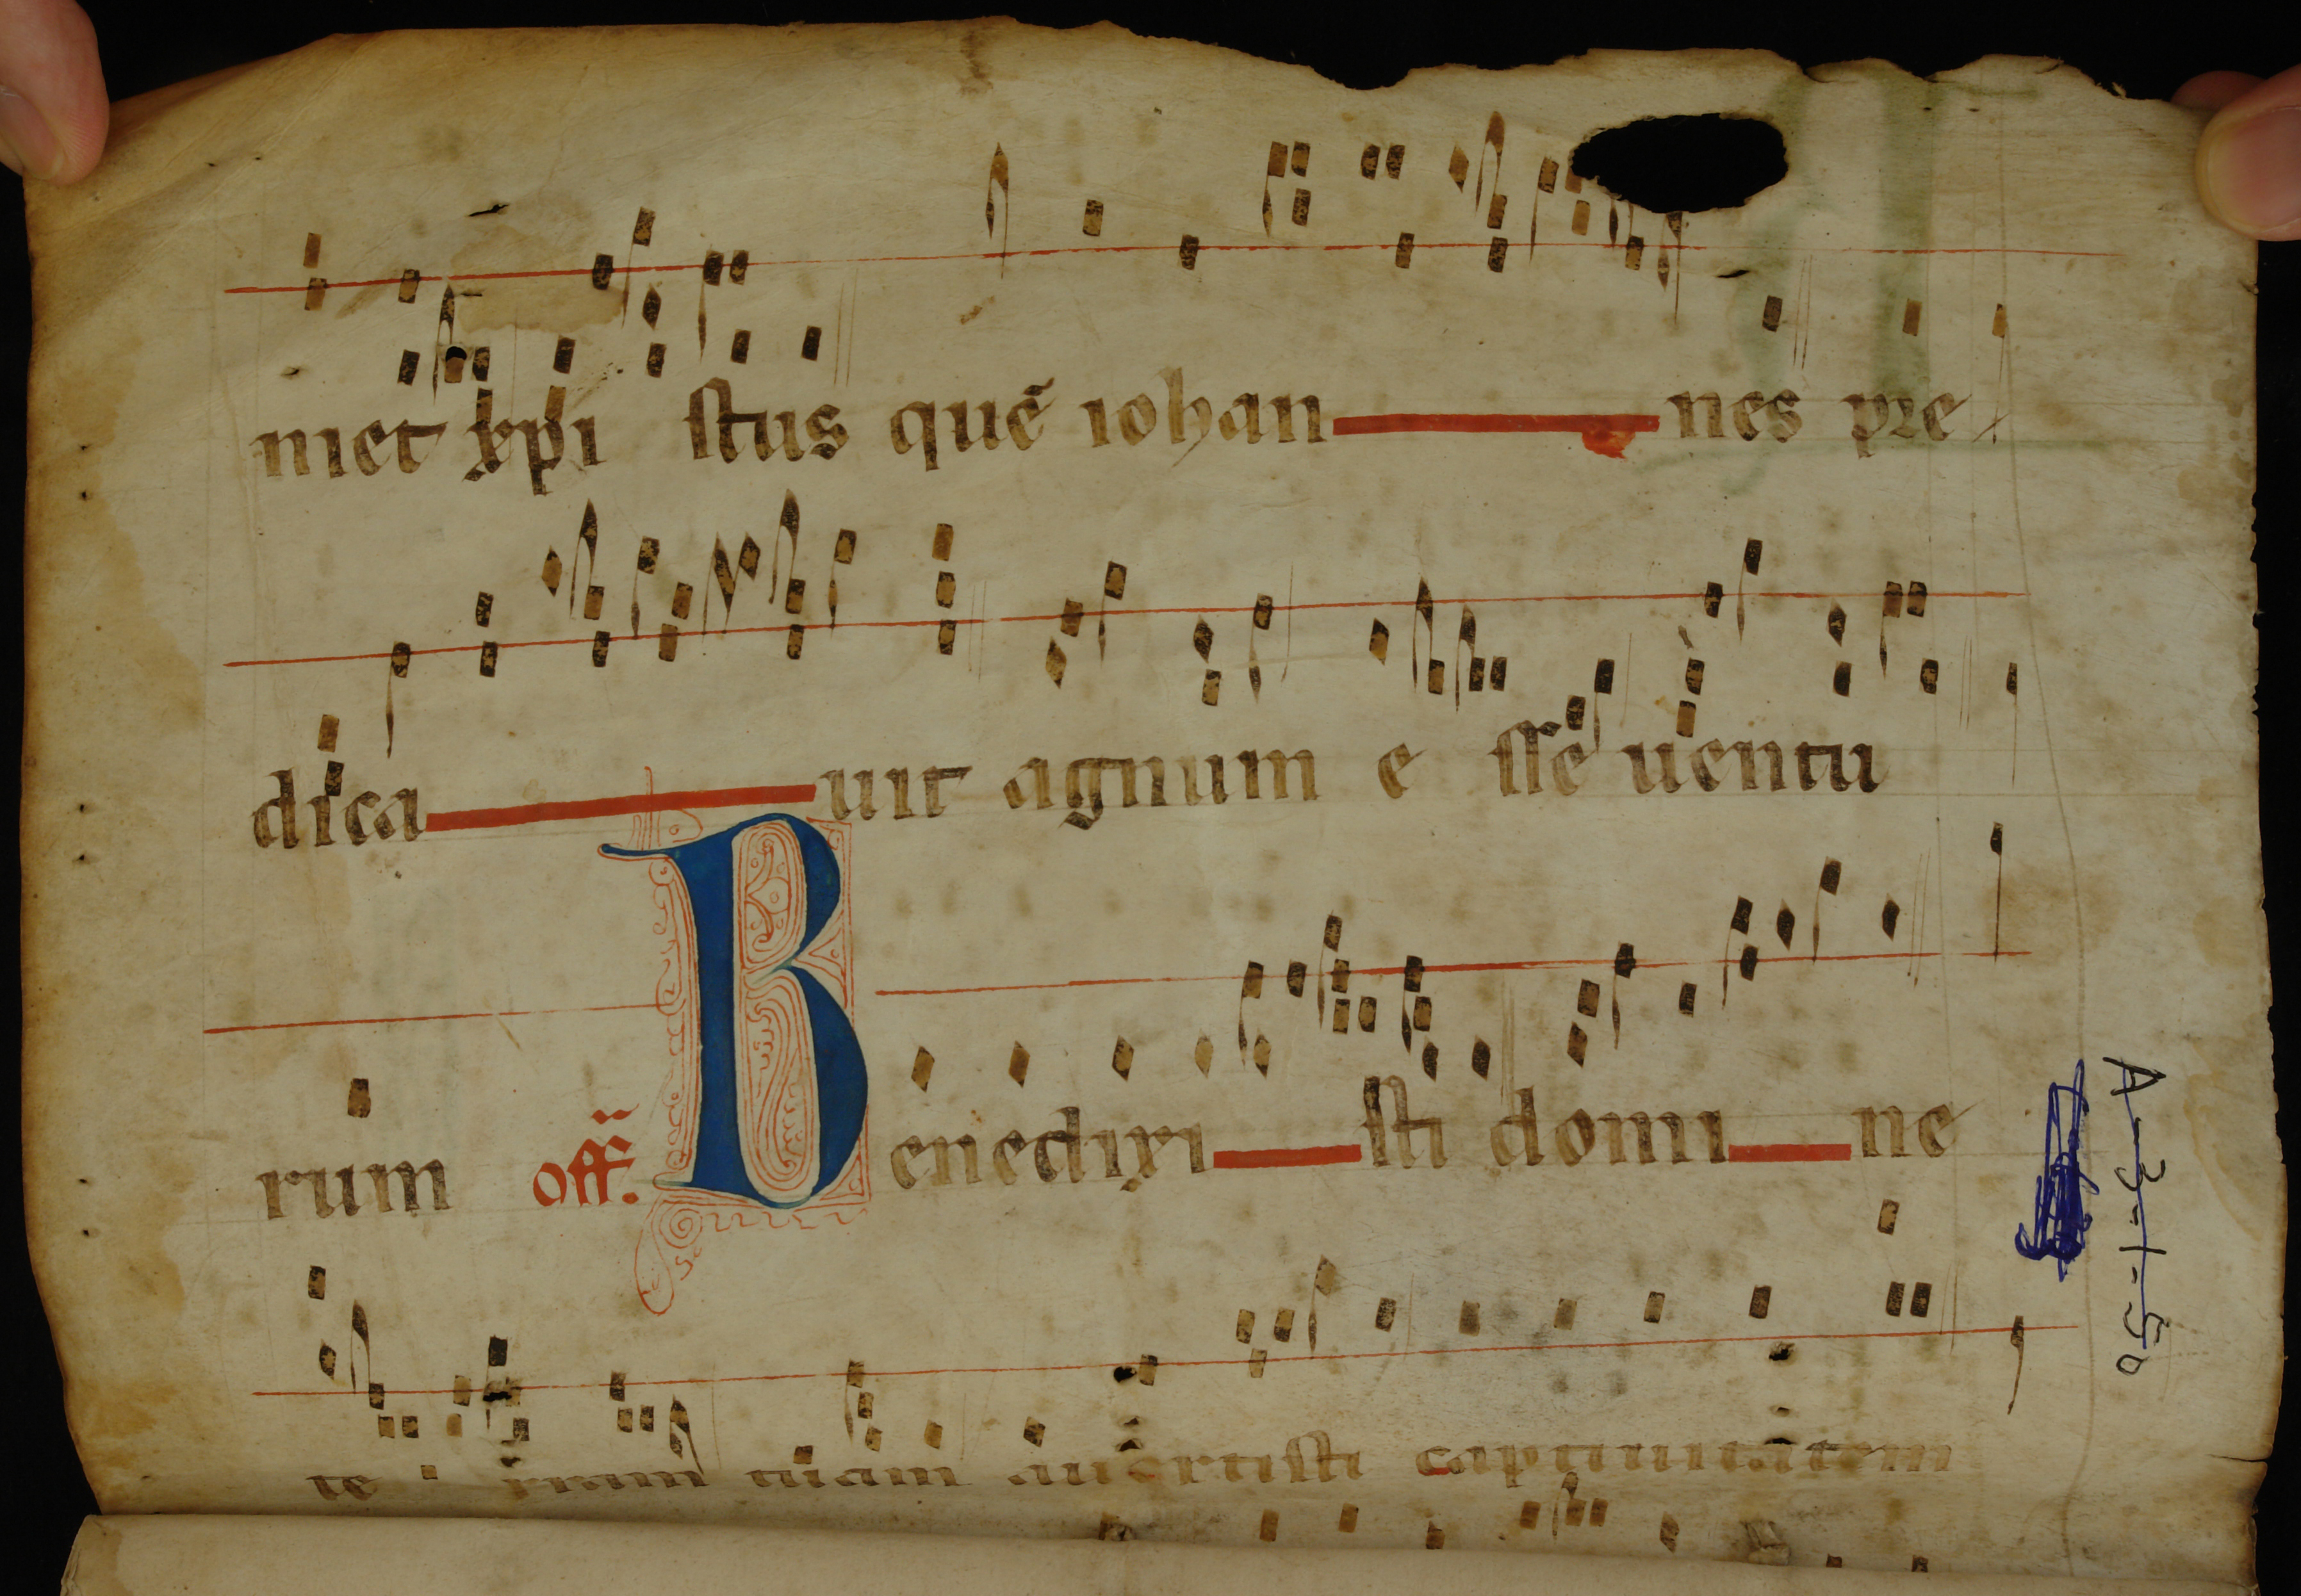 niet xpi stus quē iohan nes pre
dica uit agnum e sse uentu
rum off. Benedixi sti domi ne
iram tuam auertisti captiuitatem
A-3-1-50